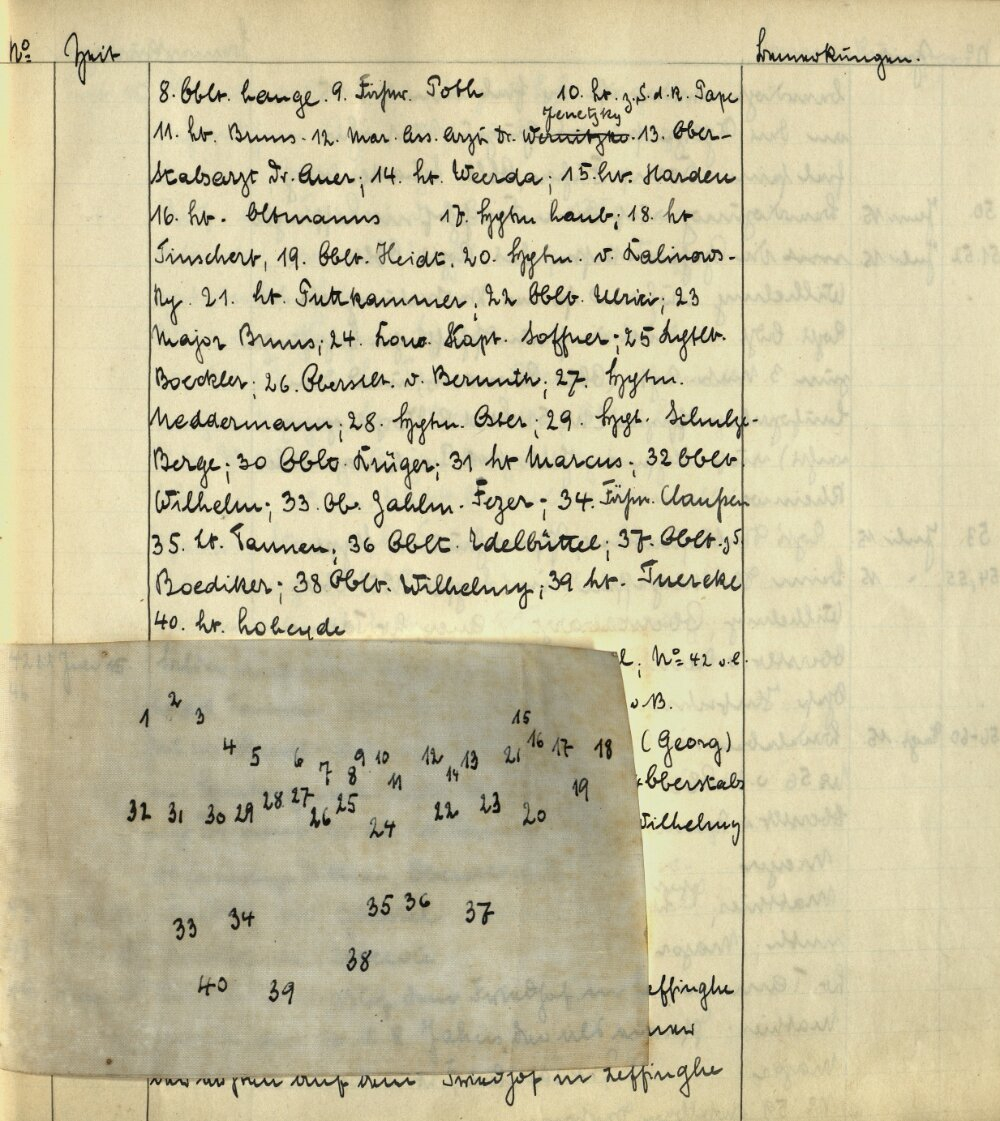 No Zeit Bemerkungen.
8. Oblt. Lange. 9. Firpw. Poth 10. Lt. z. S. d. R. Pape
Jenetzky
11. Lt. Bruns. 12. Mar. Ass. Arzt Dr. Wernitzko 13. Ober-
stabsarzt Dr. Auer; 14. Lt. Weerda; 15. Lt. Harden
16. Lt. Oltmanns 17. Hptm Laub; 18. Lt
Tinschert, 19. Oblt. Heidt. 20. Hptm. v. Kalinows-
ky. 21. Lt. Puttkammer, 22 Oblt. Ulrici; 23
Major Bruns; 24. Korv. Kapt. Soffner; 25
Boeckler; 26. Oberstlt. v. Bernuth; 27. Hptm.
Neddermann; 28. Hptm. Oster; 29. Hpt. Schulze-
Berge; 30 Oblt. Krüger; 31 Lt Marcus; 32 Oblt.
Wilhelm; 33. Ob. Zahlm. Fezer; 34. Claussen
35. Lt. Tannen, 36 Oblt. Edelbüttel; 37. Oblt. z S.
Boediker; 38 Oblt. Wilhelmy; 39 Lt. Tuercke
40. Lt. Loheyde
No 42 v. l.
v B.
(Georg)
Oberstabs
Wilhelmy
1 2 3 15
4 5 6 7 8 9 10 11 12 13 14 21 16 17 18
32 31 30 29 28 27 26 25 24 22 23 20 19
33 34 35 36 37
38
40 39
effinghe
auf dem Friedhof in Leffinghe